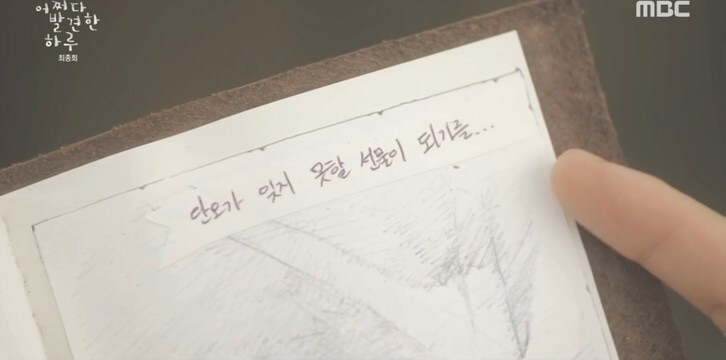 어쩌다
발견한
하루
최종회
MBC
단오가 잊지 못할 선물이 되기를...